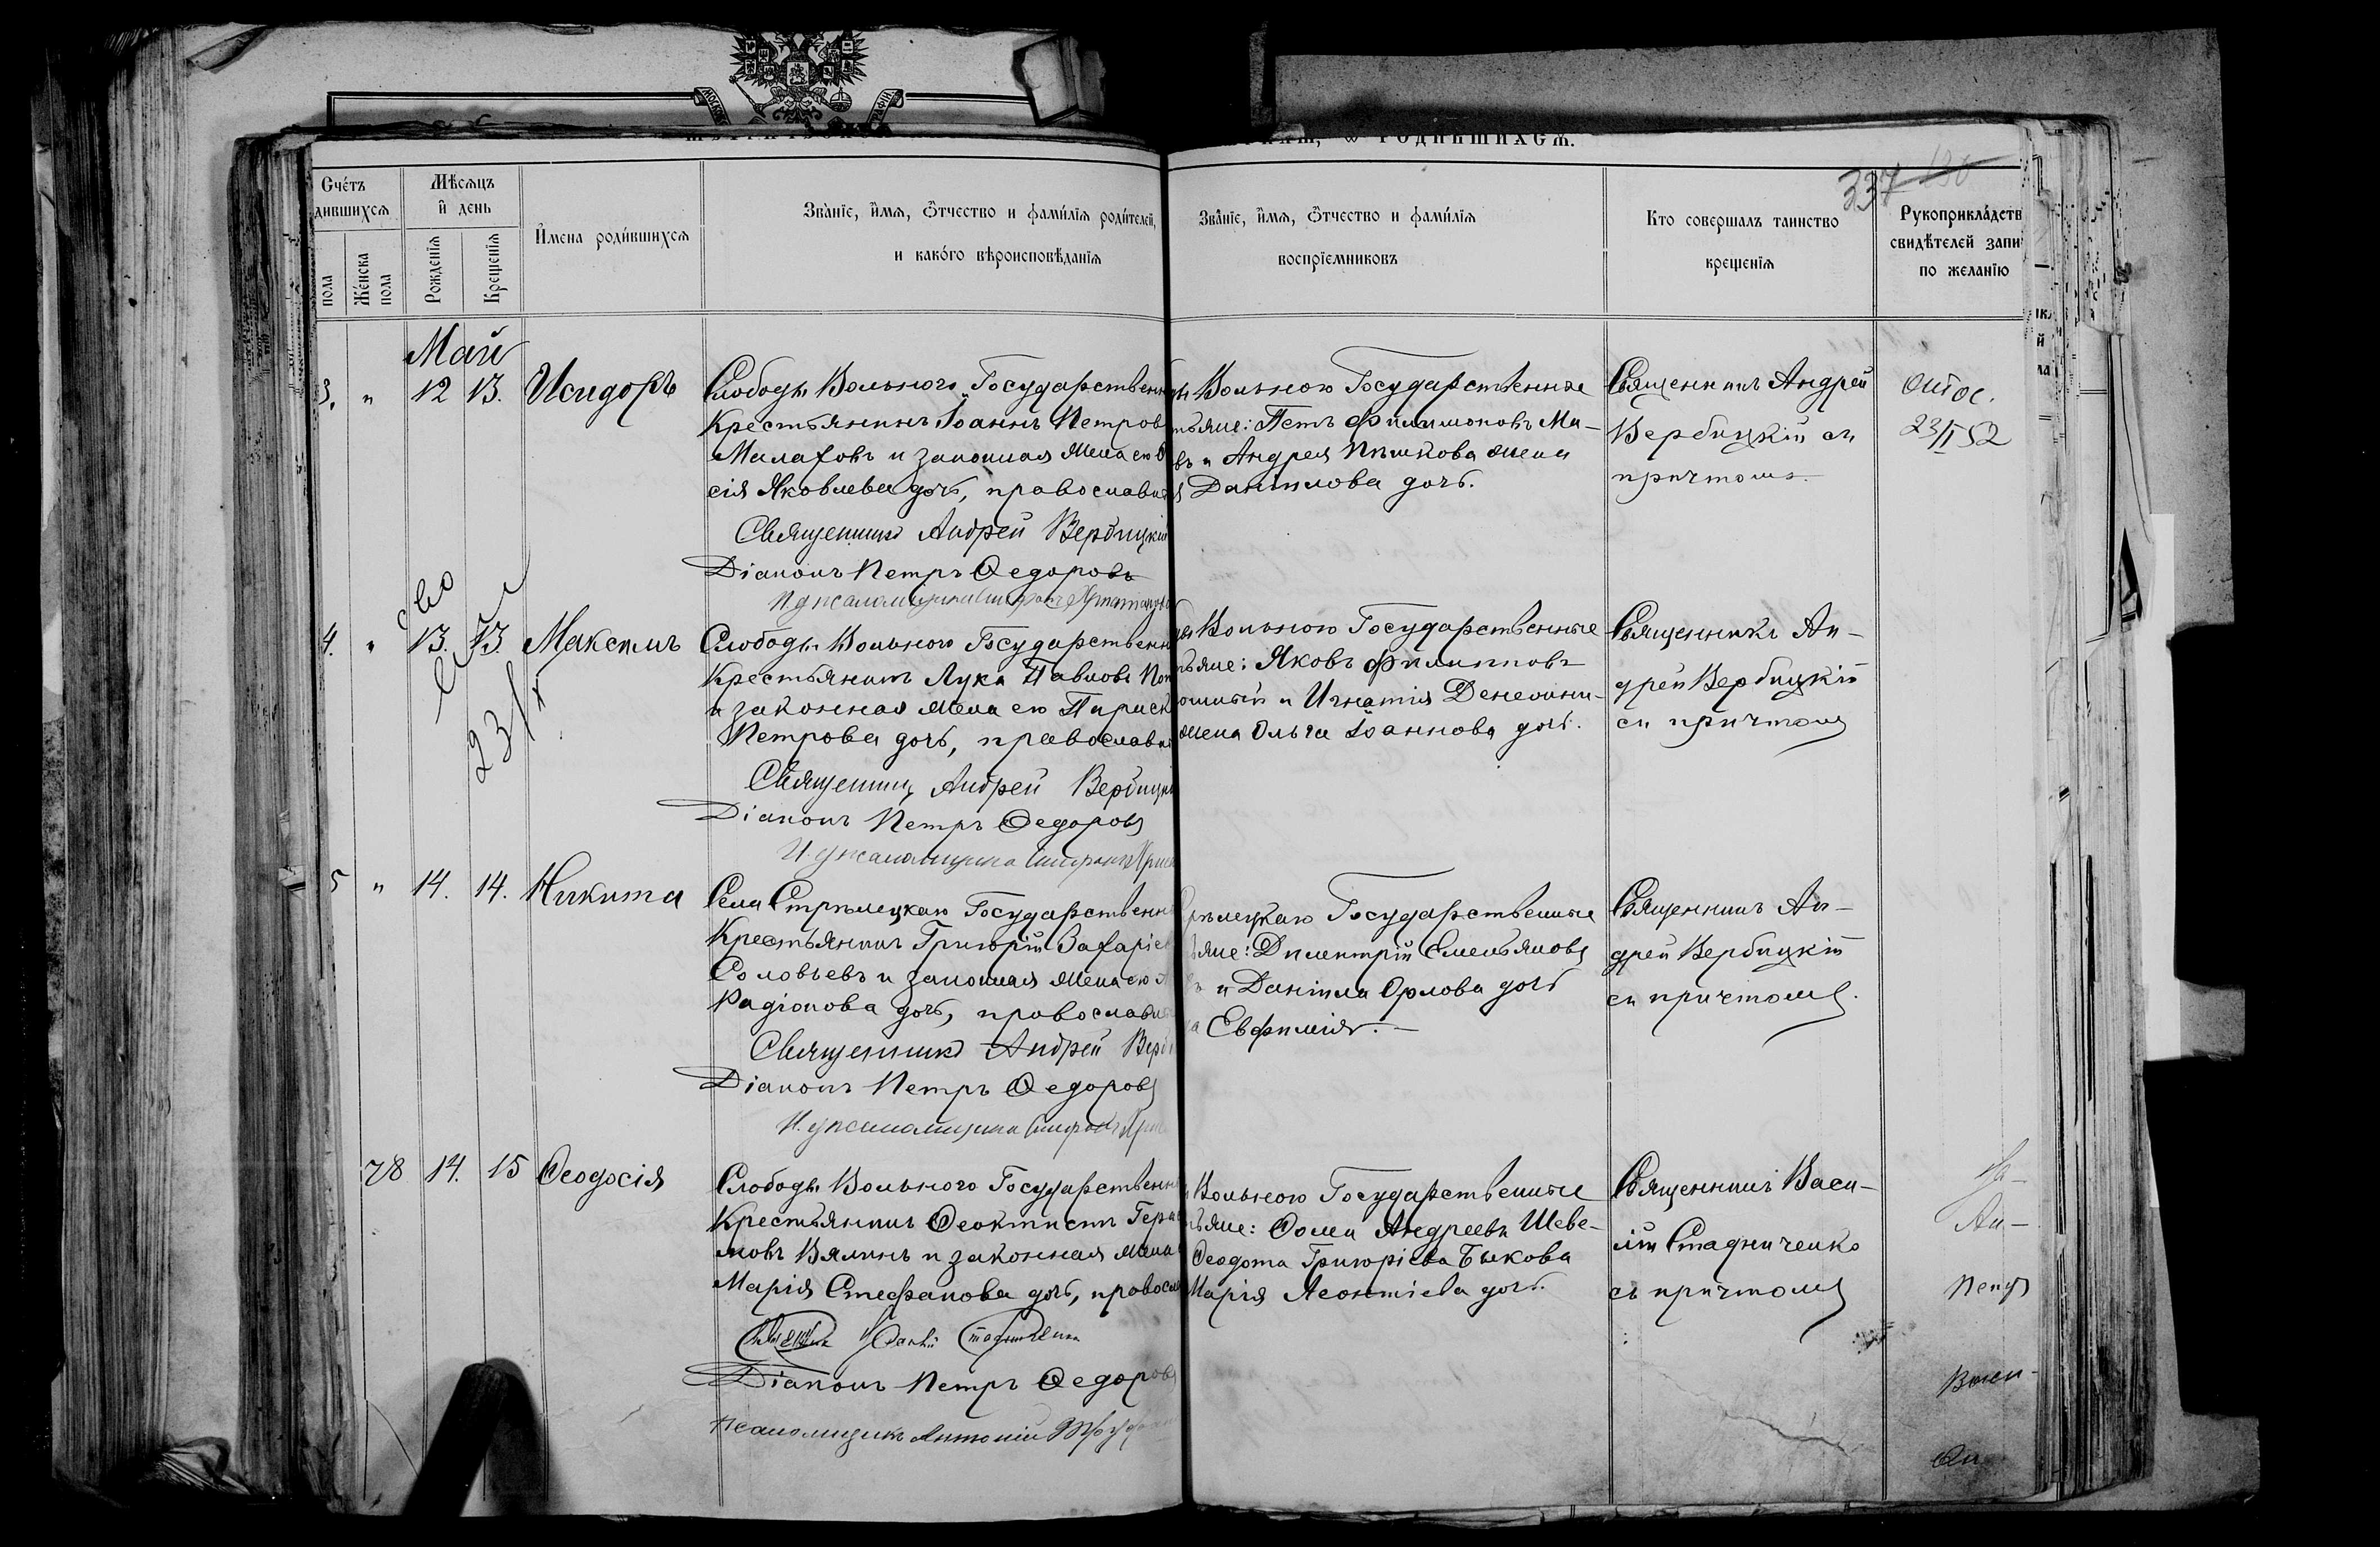 РОДИВШИХСѦ.
337 130
Счетъ
дившихсѧ
Мѣсѧцъ
и день
пола
Женска
пола
Рожденїѧ
Крещенїѧ
Имена родившихсѧ
Званїе, имѧ, ѿчество и фамилїѧ родителей,
и какого вѣроисповѣданїѧ
Званїе, имѧ, ѿчество и фамилїѧ
воспрїемниковъ
Кто совершалъ таинство
крещенїѧ
Рукоприкладств
свидѣтелей запи
по желанїю
Май
3. " 12 13. Исидоръ
Слободы Вольнаго Государственн
Крестьянинъ Іоаннъ Петров
Малаховъ и законная жена его
сія Яковлева дочь, православн
Священникъ Андрей Вербицкій
Діаконъ Петръ Ѳедоровъ
Вольного Государственные
тьяне: Петъ Филимоновъ Ма-
въ и Андрея Пѣшкова жена
Даніилова дочь.
Священникъ Андрей
Вербицкій съ
причтомъ.
23/I 52
4. " 13. 13. Максимъ
23/
Слободы Вольного Государственн
Крестьянинъ Лука Павловъ
и законная жена его Париск
Петрова дочь, православн
Священникъ Андрей Вербицкі
Діаконъ Петръ Ѳедоровъ
Вольного Государственные
тьяне: Яковъ Филипповъ
и Игнатія
жена Ольга Іоаннова дочь.
Священникъ Ан-
дрей Вербицкій
съ причтомъ
5 " 14. 14. Никита
Села Стрѣлецкаго Государственн
Крестьянинъ Григорій Захаріев
Соловьевъ и законная жена его
Радіонова дочь, православн
Священникъ Андрей Верб
Діаконъ Петръ Ѳедоровъ
рѣлецкаго Государственные
ьяне: Димитрій Емельяновъ
и Даніила Орлова дочь
Евфимія. —
Священникъ Ан-
дрей Вербицкій
съ причтомъ.
28 14. 15 Ѳеодосія
Слободы Вольного Государственн
Крестьянинъ Ѳеоктистъ Гера
мовъ Вялинъ и законная жена
Марія Стефанова дочь, правосл
Діаконъ Петръ Ѳедоровъ
Псаломщикъ Антоній
Вольного Государственные
тьяне: Ѳома Андреевъ Шеве-
Ѳеодота Григоріева Быкова
Марія Леонтіева дочь.
Священникъ Васи-
лій Стадниченко
съ причтомъ
Ан-